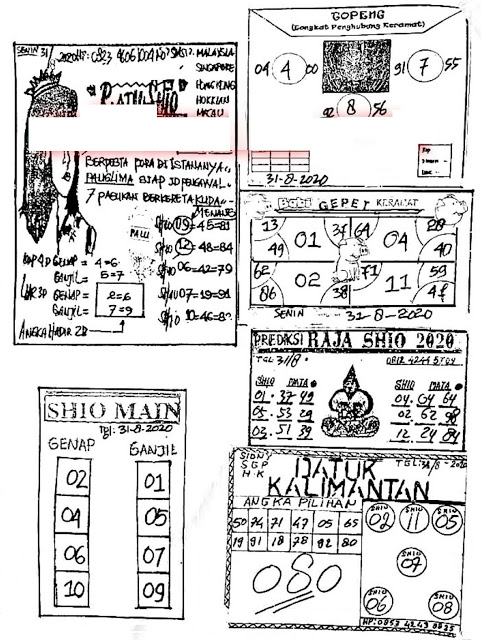 SENIN 31
MALAYSIA
SINGAPORE
HONGKONG
HOKKIAN
MACAU
BERPESTA PORA DI ISTANANYA
PANGLIMA SIAP JD PENGAWAL
7 PASUKAN BERKERETA KUDA
MENANG
SHIO 09=45=81
SHIO 12=48=84
SHIO 06=42=79
07=19=91
SHIO 10=46=82
PALU
GENAP = 4=6
GANJIL = 5=7
GENAP = 2=6
GANJIL = 7=9
GOPENG
(Tongkat Penghubung Keramat)
04 4 00
91 7 55
92 8 56
31-8-2020
BABI GEPET KERAMAT
13 49 01 37 64 04 28 40
62 86 02 38 71 11 59
SENIN 31-8-2020
PREDAKSI RAJA SHIO 2020
TGL 31/8.
SHIO MATA
01. 37 49
05. 53 29
03. 51 39
SHIO MATA
04. 64 64
02 62
12. 24 84
SHIO MAIN
Tgl: 31-8-2020
GENAP GANJIL
02 01
04 05
06 07
10 09
SIDNY
SGP
HK
DATUK
KALIMANTAN
TGL: 31/8-2020
ANGKA PILIHAN
50 74 71 47 05 65
19 91 18 78 92 80
080
SHIO 02
SHIO 11
SHIO 05
SHIO 07
SHIO 06
SHIO 08